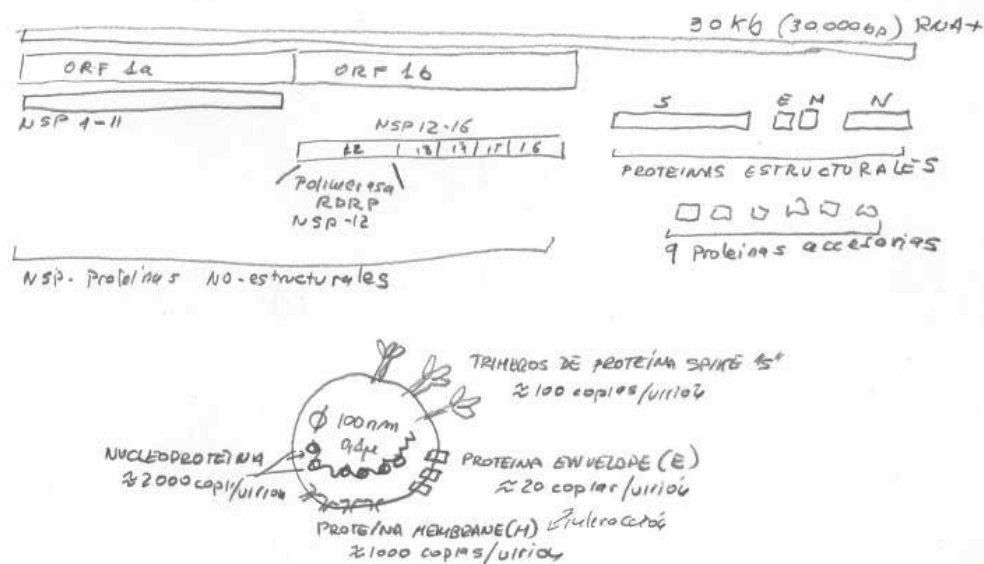 30Kb (30.000bp) RNA+
ORF 1a
ORF 1b
NSP 1-11
NSP 12-16
12 13 14 15 16
Polimerasa
RDRP
NSP-12
S E M N
PROTEINAS ESTRUCTURALES
9 Proteinas accesorias
NSP. Proteinas NO-estructurales
TRIMEROS DE PROTEÍNA SPIKE "S"
≈ 100 copias/virión
Ø 100nm
0,1µ
NUCLEOPROTEINA
≈ 2000 copias/virion
PROTEINA ENVELOPE (E)
≈ 20 copias/virión
PROTEÍNA MEMBRANE (M)
≈ 1000 copias/virion